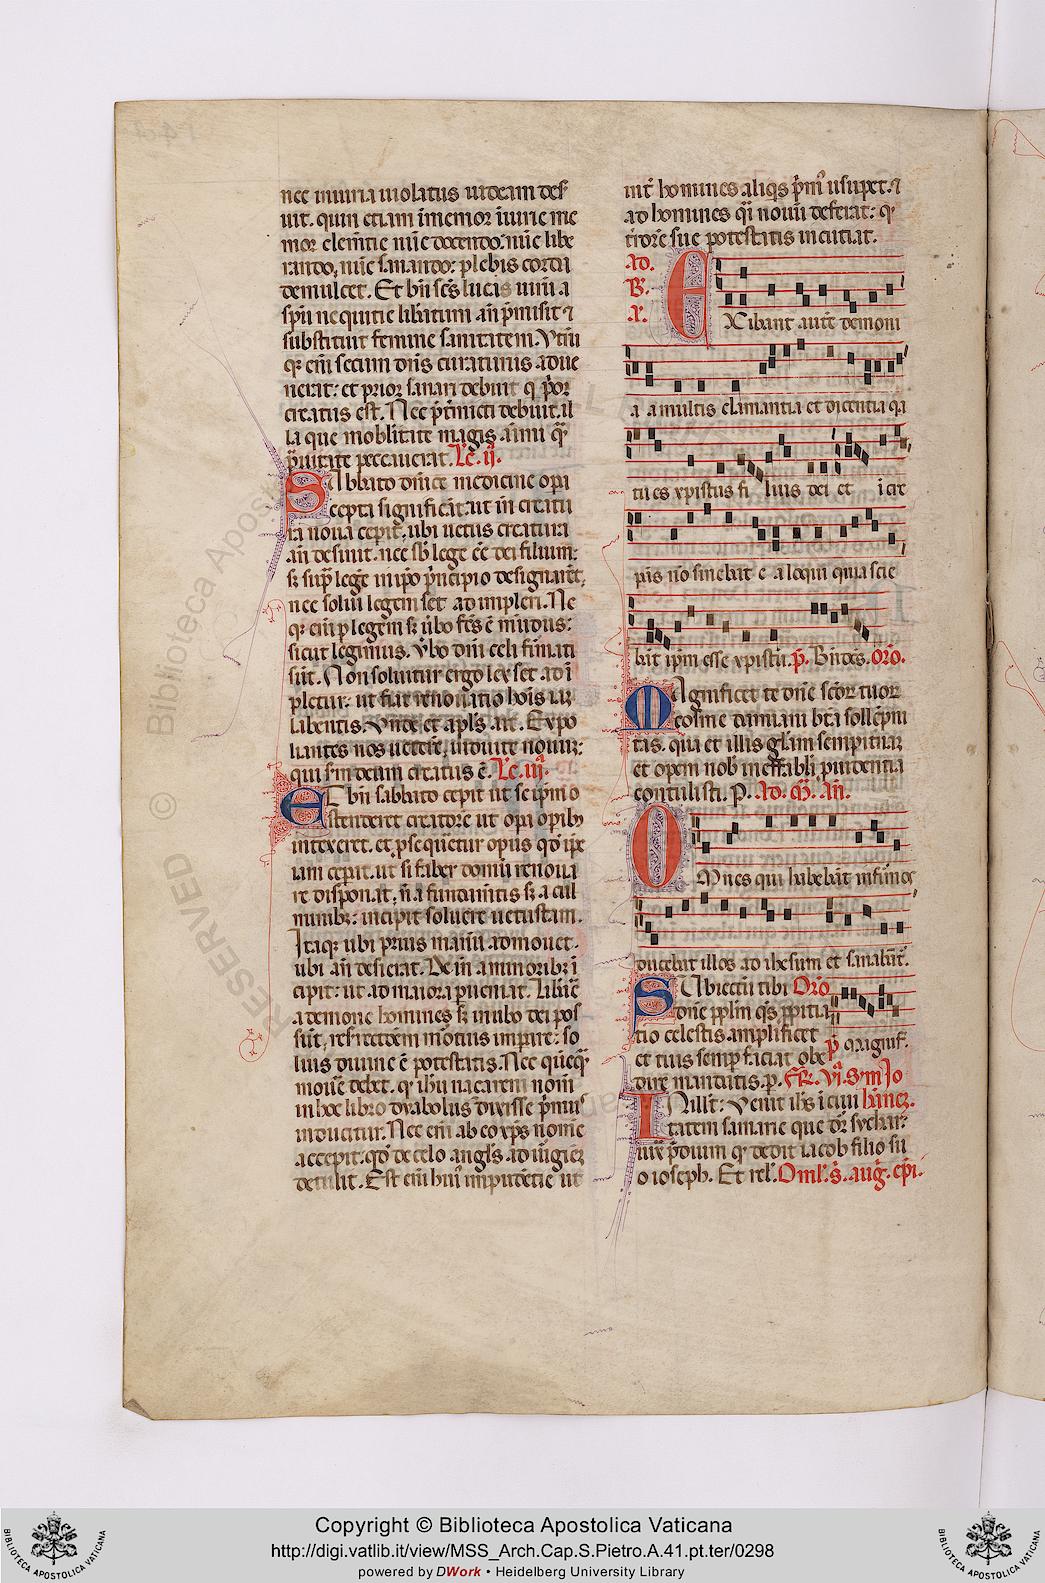 nec iniuria uiolatus uideam des
uit. quin etiam īmemor iniurie me
mor clemētie nūc docendo. nūc libe
rando, nūc sanando: plebis corda
demulcet. Et bn̄ scs̄ lucas uirū a
spū nequitie libatum an̄ p̄misit ⁊
substituit femine sanitatem. Vtrū
q; em̄ secum dn̄s curaturus adue
nerat: et prior sanari debuit q p̄or
creatus est. Nec p̄tmicti debuit il
la que mobilitate magis animi q̄
prauitate peccauerat. Lc̄. ij.
Sabbato dn̄ice medicine opa
cepta significāt: ut in creatu
ra noua cepit, ubi uetus creatura
an̄ desinit. nec sb̄ lege eē dei filium:
s; sup̄ lege in ipō p̄ncipio designaret,
nec solui legem set adimpleri. Ne
q; em̄ p legem s; u̓bo fcs̄ ē mūdus:
sicut legimus. Vbo dn̄i celi firmati
sūt. Non soluitur ergo lex set adī
pletur: ut fiat renouatio hoīs iaz
labentis. Vnde et apls̄ ait. Expo
liantes uos ueterē, induite nouū:
qui scd̄m deum creatus ē. Lc̄. iij.
Et bn̄ sabbato cepit ut se ip̄m o
stenderet creatorē ut opa opib;
intexeret. et pseq̄retur opus qd̄ ipe
iam cepit. ut si faber domū renoua
re disponat, n̄ a fundamētis s; a cul
minib;: incipit soluere uetustam.
Itaq; ubi prius manū admouet.
ubi an̄ desierat. Dein a minorib; ī
cipit: ut ad maiora pueniat. Liberē
a demone homines s; in u̓bo dei pos
sūt, resurrectōem mōtuis impare: so
lius diuine ē potestatis. Nec quēq̄
mouē debet. q ihū nazareni nom̄
in hoc libro dyabolus dixisse p̄mus
inducitur. Nec em̄ ab eo xp̄s nomē
accepit. qd̄ de celo angls̄ ad uirgiēz
detulit. Est em̄ huī impudētie ut
int̄ homines aliqs p̄m̄ usupet. ⁊
ad homines q̄i nouū deferat: q
tr̄rore sue potestatis incutiat.
Ad.
B.
A.
EXibant autē demoni
a a multis clamantia et dicentia qa
tu es xpistus fi lius dei et icre
pās nō sinebat e a loqui quia scie
bāt ip̄m esse xpistū. p̄. Bn̄dc̄s. Orō.
Magnificet te dn̄e scōr̄ tuor̄
cosme damiani bt̄a sollēpni
tas. qua et illis glāiam sempitnaz
et opem nob̄ ineffabili puidentia
contulisti. P. Ad. M̄. An̄.
OMnes qui habebāt infirmos
ducebāt illos ad ihesum et sanabāt̄.
Subiectū tibi Orō
dn̄e pplm̄ qs̄ ppitia
tio celestis. amplificet p̄ magnif.
et tuis semp faciat obe
dire mandatis. p. FR. VI. Scd̄m Io
In illō t̄: Venit ihs̄ ī ciui hānez.
tatem samarie que dr̄ sychar:
iux p̄dium q dedit iacob filio su
o ioseph. Et rel̄. Oml̄. s̄. auḡ. ep̄i.
RESERVED © Biblioteca Apostolica
Copyright © Biblioteca Apostolica Vaticana
http://digi.vatlib.it/view/MSS_Arch.Cap.S.Pietro.A.41.pt.ter/0298
powered by DWork • Heidelberg University Library
BIBLIOTECA APOSTOLICA VATICANA
BIBLIOTECA APOSTOLICA VATICANA